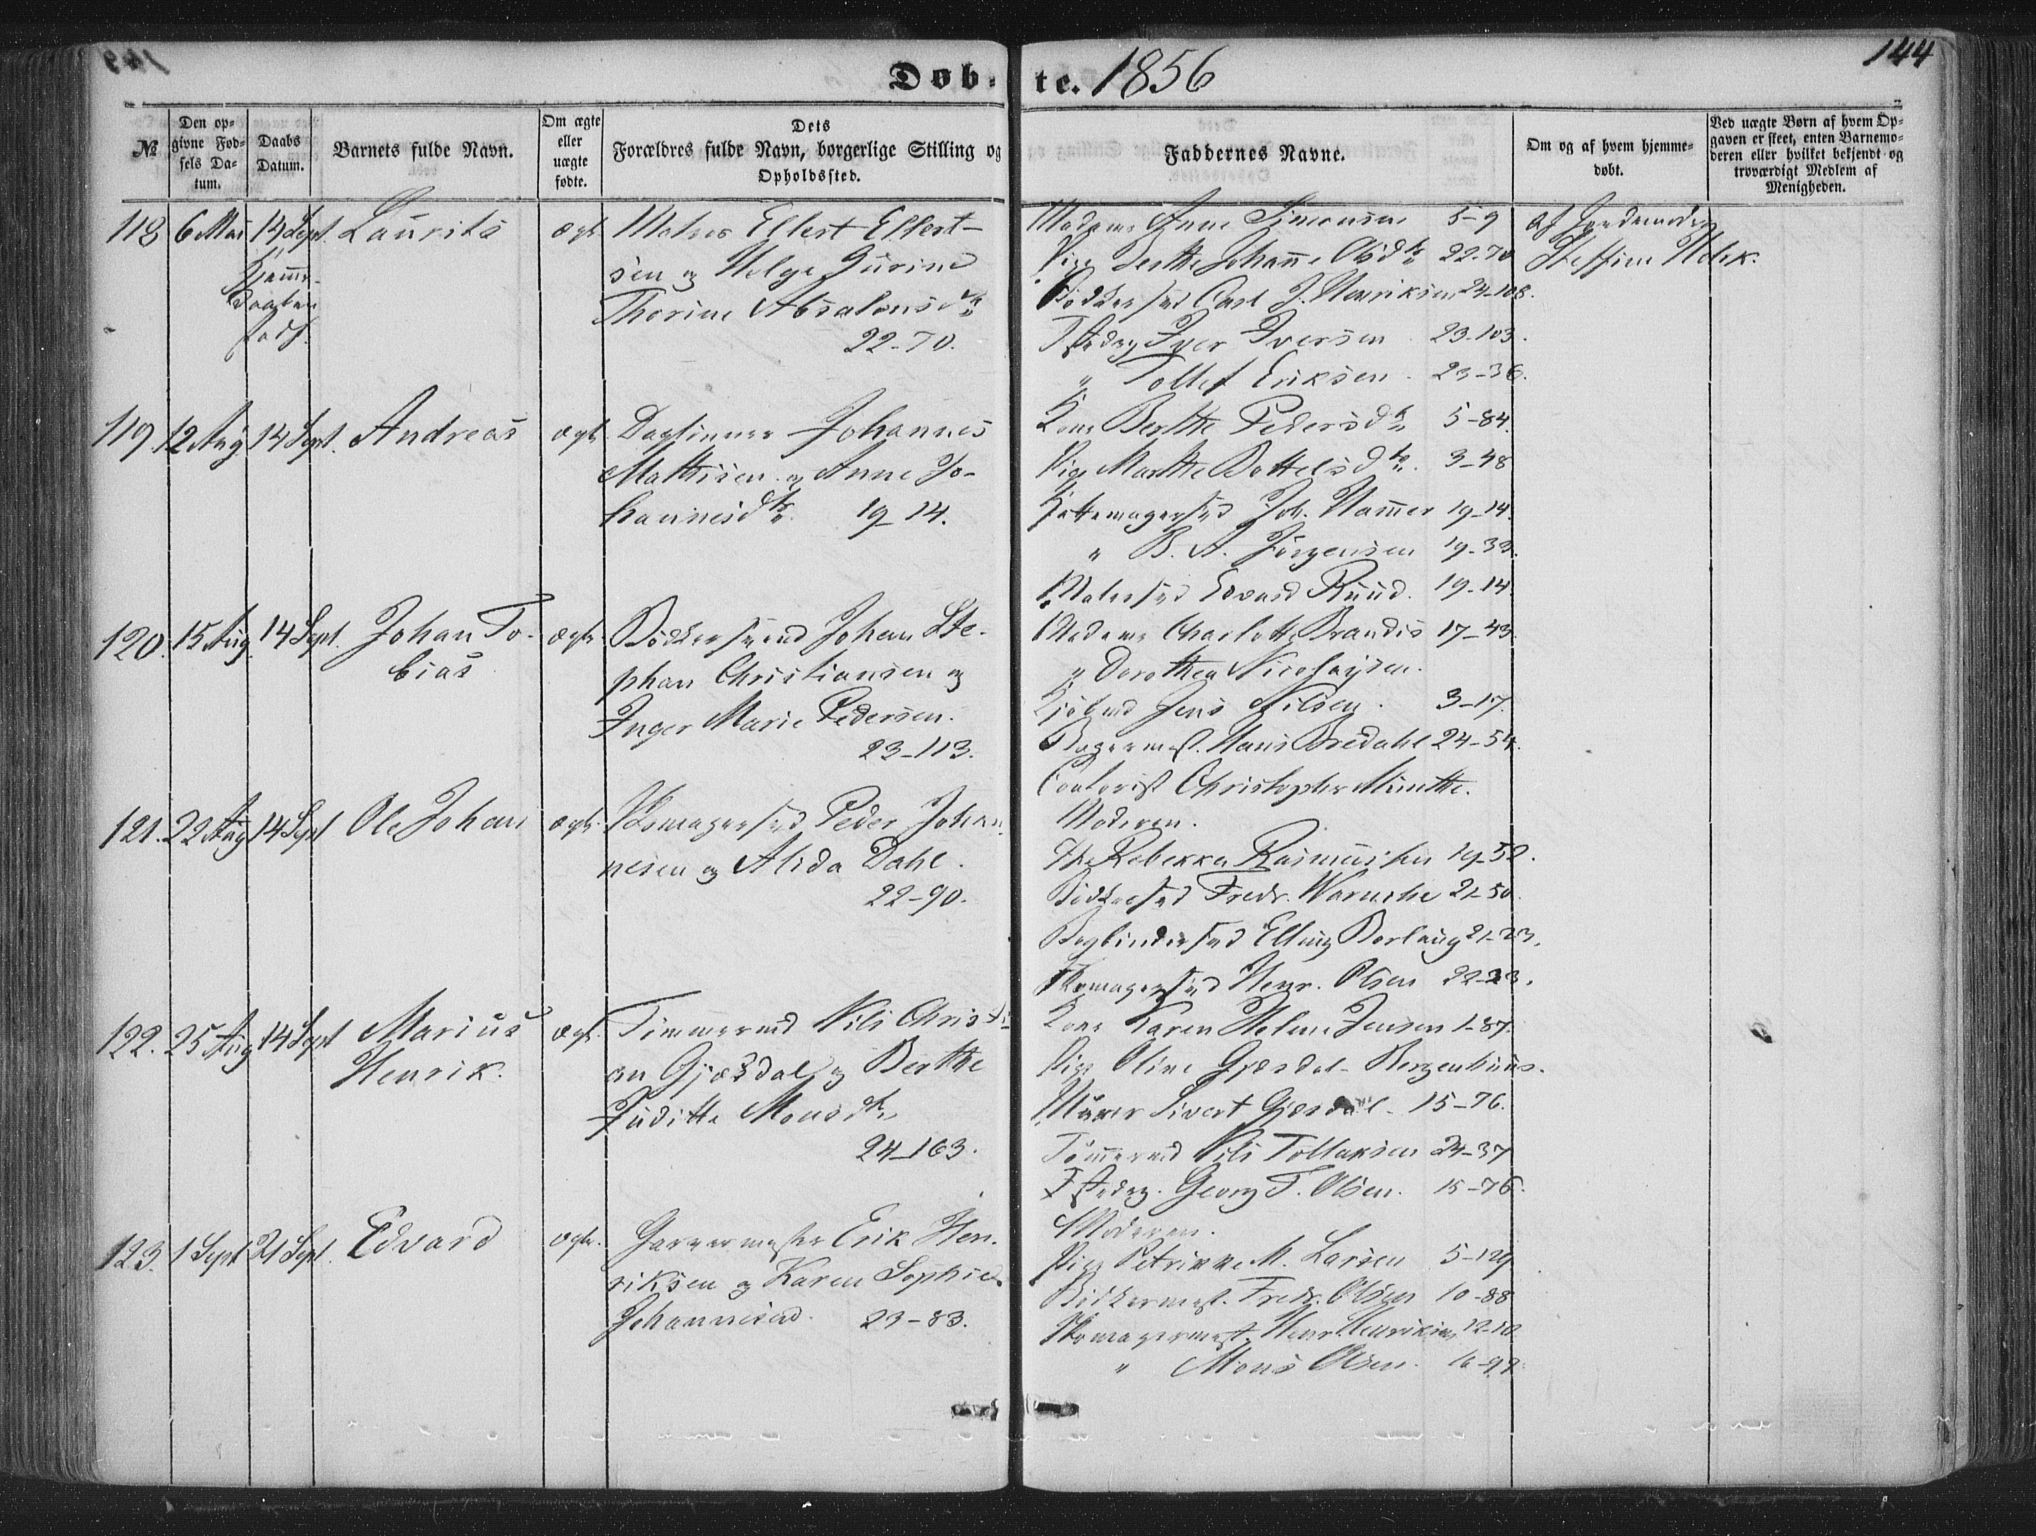 Døbte. 1856
144
№
Den opgivne Fødsels Datum.
Daabs Datum.
Barnets fulde Navn.
Om ægte eller uægte fødte.
Dets Forældres fulde Navn, borgerlige Stilling og Opholdssted.
Faddernes Navne.
Om og af hvem hjemmedøbt.
Ved uægte Børn af hvem Opgaven er skeet, enten Barnemoderen eller hvilket bekjendt og troværdigt Medlem af Menigheden.
118 6 Mai 14 Sept. Laurits ægte Matros Ellert Ellert-
sen og Helge Gurine
Thorine Absalonsdtr
22-70.
Hjemme
Daaben
stadf.
Madame Anne Simonsen 5-9
Pige Berthe Johanne Olsdtr 22-70
Bødkersvd Carl J. Henriksen 24-108.
Iver Iversen 23-103.
" Tollef Eriksen 23-36.
af Jordemoder
Steffine
119. 12 Aug 14 Sept. Andreas ægte Johannes
Mathisen og Anne Jo-
hannesdtr. 19-14.
Kone Berthe Pedersdtr 5-84.
Pige Marthe Bottelsdtr. 3-48
Joh. Hammer 19-14.
" B. A. Jörgensen 19-33.
Malersvd Edvard Ruud. 19-14.
120. 15 Aug. 14 Sept. Johan To-
bias
ægte Bödkersvend Johan Ste-
phan Christiansen og
Inger Marie Pedersen.
23-113.
Madame Charlotte Brandis 17-43.
" Dorothea Nicolaysen.
Jens Nilsen. 3-17.
Bagermest. Hans Bredahl 24-54.
Contorist Christopher Munthe.
121. 22 Aug 14 Sept Ole Johan ægte. Skomagersvd Peder Johan-
nesen og Alida Dahl.
22-90.
Moderen.
Rebekka Rasmussen 19-52.
Bödkersvd Fredr. Warncke 21-50.
Bogbindersvd Elling Borlaug 21-23.
Skomagersvd Henr. Olsen 22-23.
122. 25 Aug 14 Sept Marius
Henrik.
ægte. Tømmermd Nils Christi-
an Gjæsdal og Berthe
Juditte Monsdtr
24-163.
Kone Karen Helene Jensen 1-87.
Pige Oline Gjæsdal Bergenhuus.
Murer Sivert Gjæsdal 15-76.
Tömmermd Nils Tollaksen 24-37
Georg T. Olsen. 15-76.
123. 1 Sept 21 Sept. Edvard ægte. Garvermester Erik Hen-
riksen og Karen Sophie
Johannesen. 23-83.
Moderen.
Pige Petrikke M. Larsen 5-129
Bödkermest. Fredr. Olsen 10-88
Skomagermest. Henr. Henriksen 12-10
" Mons Olsen.